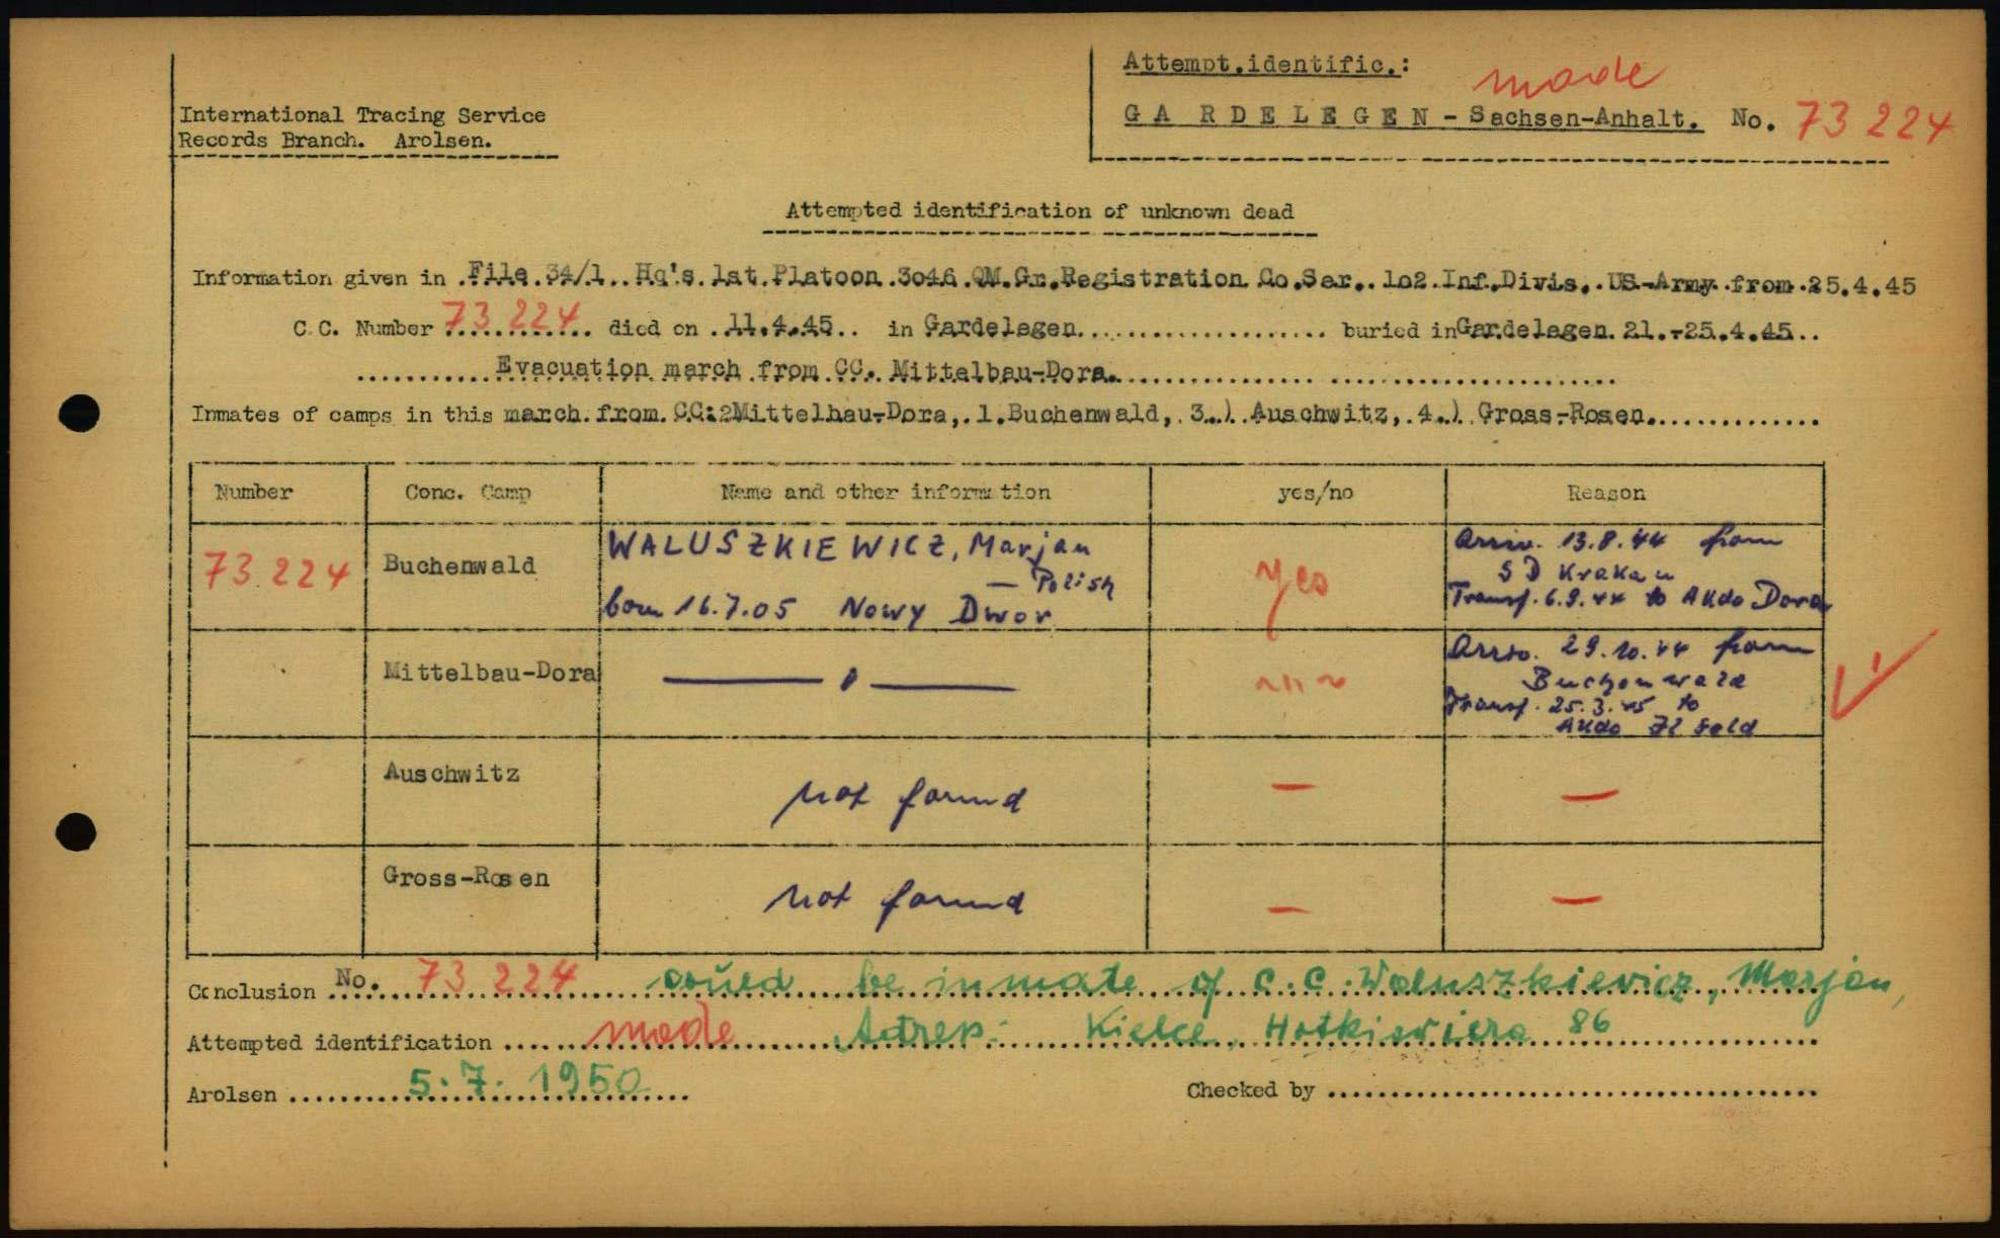 Attempt.identific.:
made
International Tracing Service
Records Branch. Arolsen.
GARDELEGEN - Sachsen-Anhalt. No. 73 224
Attempted identification of unknown dead
Information given in File 34/1. Hq's. 1st.Platoon 3046 QM.Gr.Registration Co.Ser. 1o2.Inf.Divis. US-Army from 25.4.45
C.C. Number 73 224 died on 11.4.45 in Gardelegen buried in Gardelegen 21.-25.4.45
Evacuation march from CC. Mittelbau-Dora.
Inmates of camps in this march from CC:2Mittelbau-Dora, 1.Buchenwald, 3.) Auschwitz, 4.) Gross-Rosen.
Number Conc. Camp Name and other information yes/no Reason
73 224 Buchenwald WALUSZKIEWICZ, Marjan
— Polish
born 16.7.05 Nowy Dwor
yes
Arriv. 13.8.44 from
SD Krakau
Transf. 6.9.44 to AKdo Dora
Mittelbau-Dora
Arriv. 29.10.44 from
Buchenwald
Transf. 25.3.45 to
AKdo Ilfeld
Auschwitz not found — —
Gross-Rosen not found — —
Conclusion No. 73 224 could be inmate of C.C. Waluszkievicz, Marjan,
Attempted identification made Adres: Kielce 86
Arolsen 5.7.1950 Checked by